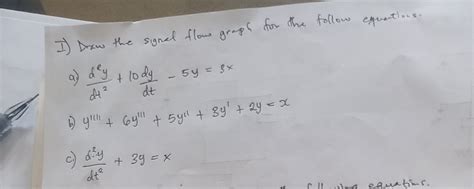 I) Draw the signal flow graph for the follow equations.
a) d²y/dt² + 10 dy/dt - 5y = 3x
b) y'''' + 6y''' + 5y'' + 3y' + 2y = x
c) d²y/dt² + 3y = x
equations.